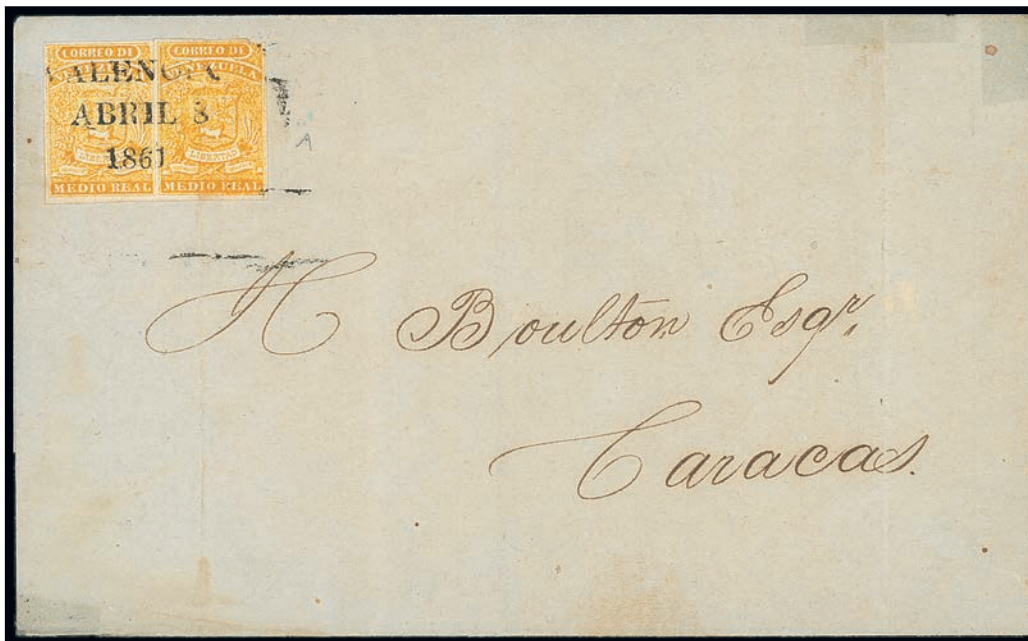 CORREO DE CORREO DE
VENEZUELA
VALENCIA
ABRIL 8
1861
LIBERTAD LIBERTAD
MEDIO REAL MEDIO REAL
A
H Boulton Esqr.
Caracas.